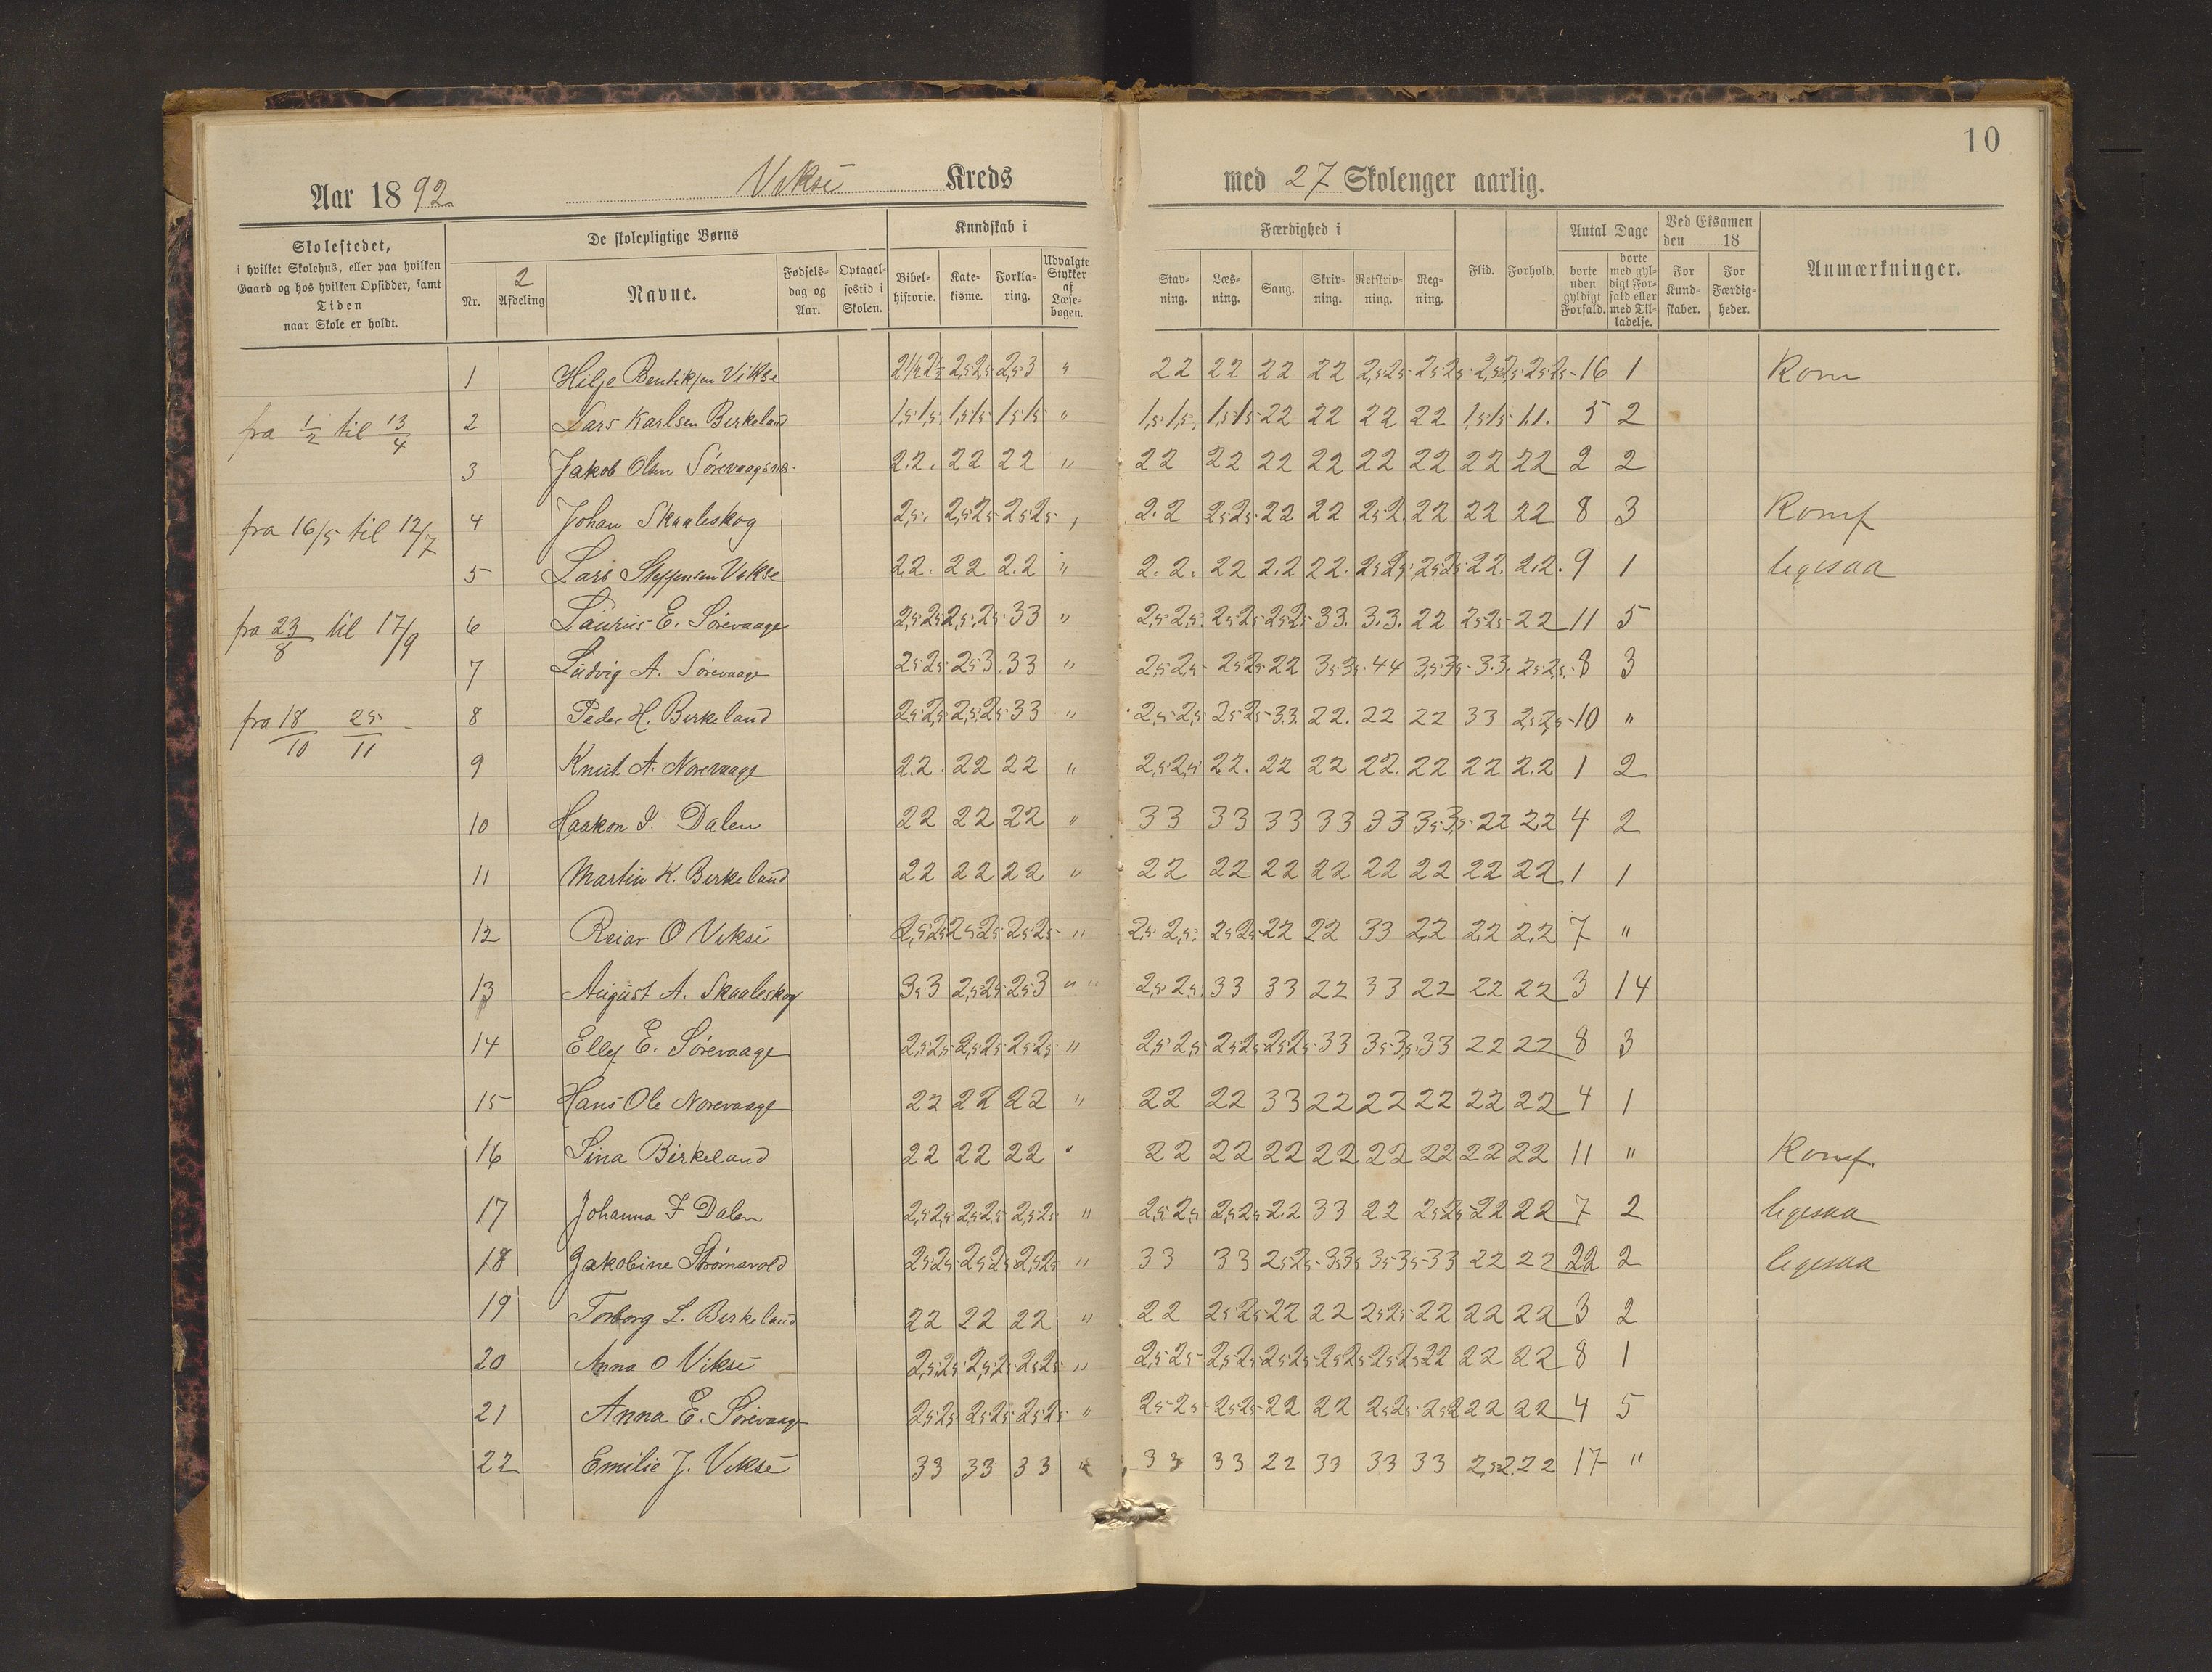 10
Aar 1892. Viksè Kreds med 27 Skolenger aarlig.
Skolestedet, i hvilket Skolehus, eller paa hvilken Gaard og hos hvilken Opsidder, samt Tiden naar Skole er holdt.
De skolepligtige Børns
Nr. 2 Afdeling Navne. Fødselsdag og Aar. Optagelsestid i Skolen.
Kundskab i
Bibelhistorie. Katekisme. Forklaring. Udvalgte Stykker af Læsebogen.
Færdighed i
Stavning. Læsning. Sang. Skrivning. Retskrivning. Regning.
Flid. Forhold.
Antal Dage
borte uden gyldigt Forfald. borte med gyldigt Forfald eller med Tilladelse.
Ved Eksamen den 18
For Kundskaber. For Færdigheder.
Anmærkninger.
1 Hilje Bentiksen Vikse 2½ 2½ 2,5 2,5 2,5 3 " 22 22 22 22 2,5 2,5 2,5 2,5 2,5 2,5 2,5 2,5 16 1
fra 1/2 til 13/4 2 Lars Karlsen Birkeland 1,5 1,5 1,5 1,5 1,5 1,5 " 1,5 1,5 1,5 1,5 22 22 22 22 1,5 1,5 1.1. 5 2
3 Jakob Olsen Sørevaagsnes 2.2. 22 22 " 22 22 22 22 22 22 22 22 2 2
fra 16/5 til 12/7 4 Johan Skaaleskog 2,5. 2,5 2,5 2,5 2,5 2.2 2,5 2,5 22 22 2,5 2. 22 22 22 8 3 Konf
5 Lars Steffensen Vikse 2.2. 22 2.2 " 2.2. 22 2.2 22. 2,5 2,5 2,5 2,5 22. 2.2. 9 1 ligesaa
fra 23/8 til 17/9 6 Laurus E. Sørevaage 2,5 2,5 2,5 2,5 33 " 2,5 2,5 2,5 2,5 2,5 2,5 33. 3.3. 22 2,5 2,5 22 11 5
7 Ludvig A. Sørevaage 2,5 2,5 2,5 3. 33 " 2,5 2,5 2,5 2,5 22 3,5 3,5 44 3,5 3,5 3.3. 2,5 2,5 8 3
fra 18/10 25/11 - 8 Peder H. Birkeland 2,5 2,5 2,5 2,5 33 " 2,5 2,5 2,5 2,5 3.3. 22. 22 22 33 2,5 2,5 10 "
9 Knut A. Norevaage 2.2. 22 22 " 2,5 2,5 22. 22 22 22. 22 22 2.2 1 2
10 Haakon I. Dalen 22 22 22 " 33 33 33 33 33 3,5 3,5 22 22 4 2
11 Martin K. Birkeland 22 22 22 " 22 22 22 22 22 22 22 22 1 1
12 Reiar O Viksè 2,5 2,5 2,5 2,5 2,5 2,5 " 2,5 2,5 2,5 2,5 22 22 33 22 22 2.2 7 "
13 August A. Skaaleskog 3,5 3 2,5 2,5 2,5 3 " " 2,5 2,5 33 33 22 33 22 22 22 3 14
14 Elley E. Sørevaage 2,5 2,5 2,5 2,5 2,5 2,5 " 2,5 2,5 2,5 2,5 2,5 2,5 33 3,5 3,5 33 22 22 8 3
15 Hans Ole Norevaage 22 22 22 " 22 22 33 22 22 22 22 22 4 1
16 Sina Birkeland 22 22 22 " 22 22 22 22 22 22 22 22 11 " Konf.
17 Johanna I Dalen 2,5 2,5 2,5 2,5 2,5 2,5 " 2,5 2,5 2,5 2,5 22 33 22 2,5 2,5 22 22 7 2 ligesaa
18 Jakobine Strømsvold 2,5 2,5 2,5 2,5 2,5 2,5 " 33 33 2,5 2,5 3,5 3,5 3,5 3,5 33 22 22 22 2 ligesaa
19 Torborg L. Birkeland 22 22 22 " 22 2,5 2,5 22 22 2,5 2,5 22 22 22 3 2
20 Anna O Viksè 2,5 2,5 2,5 2,5 2,5 2,5 " 2,5 2,5 2,5 2,5 2,5 2,5 2,5 2,5 2,5 2,5 22 22 22 8 1
21 Anna E. Sørevaage 2,5 2,5 2,5 2,5 2,5 2,5 " 2,5 2,5 2,5 2,5 22 22 2,5 2,5 2,5 2 22 22 4 5
22 Emilie J. Viksè 33 33 33 " 33 33 22 33 33 33 2,5 2. 22 17 "